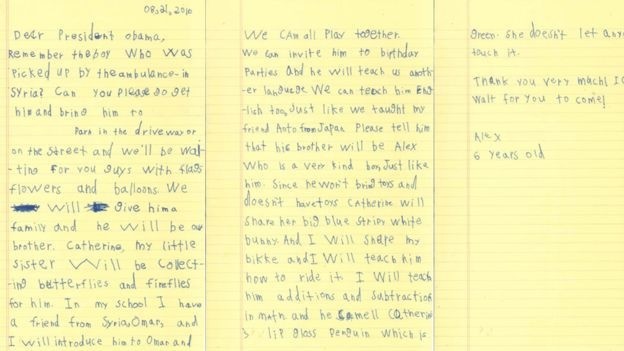 08.21.2010
Dear President obama,
Remember the boy who was
picked up by the ambulance in
Syria? Can you please go get
him and bring him to
Park in the driveway or
on the street and we'll be wai-
ting for you guys with flags
flowers and balloons. We
will give him a
family and he will be our
brother. Catherine, my little
sister will be collect-
ing butterflies and fireflies
for him. In my school I have
a friend from Syria, Omar, and
I will introduce him to Omar and
We can all play together.
We can invite him to birthday
parties and he will teach us anoth-
er language. We can teach him Eng
lish too, Just like we taught my
friend Aoto from Japan Please tell him
that his brother will be Alex
who is a very kind boy, Just like
him. Since he won't bring toys and
doesn't have toys Catherine will
share her big blue stripy white
bunny. And I will share my
bikke and I will teach him
how to ride it. I will teach
him additions and subtraction
in math. and he smell Catherine
lip gloss penguin which is
green. She doesn't let any
touch it.
Thank you very much! I c
wait for you to come!
Alex
6 years old